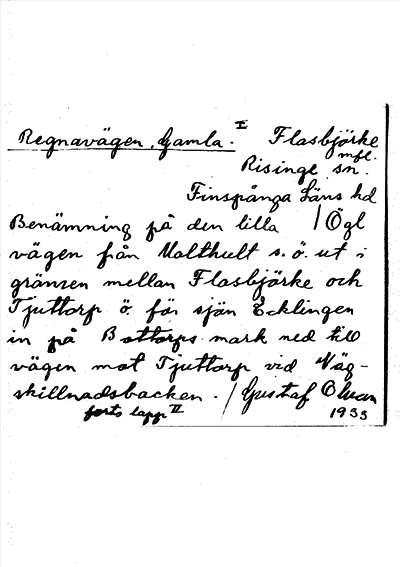 Regnavägen, Gamla. I Flasbjörke mfl.
Risinge sn.
Finspånga Läns hd
Benämning på den lilla / Ögl
vägen från Malthult s.ö. ut i
gränsen mellan Flasbjörke och
Tjuttorp ö för sjön Ecklingen
in på Bottorps mark ned till
vägen mot Tjuttorp vid Väg-
skillnadsbacken. / Gustaf
forts lapp II 1933